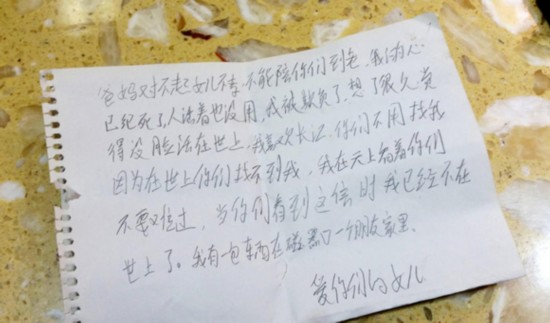 爸妈对不起女儿不孝不能陪你们到老,我的心
已经死了,人活着也没用,我被欺负了,想了很久觉
得没脸活在世上,我喜欢长江,你们不用找我
因为在世上你们找不到我,我在天上看着你们
不要难过,当你们看到这信时我已经不在
世上了。我有一包东西在磁器口一个朋友家里.
爱你们的女儿